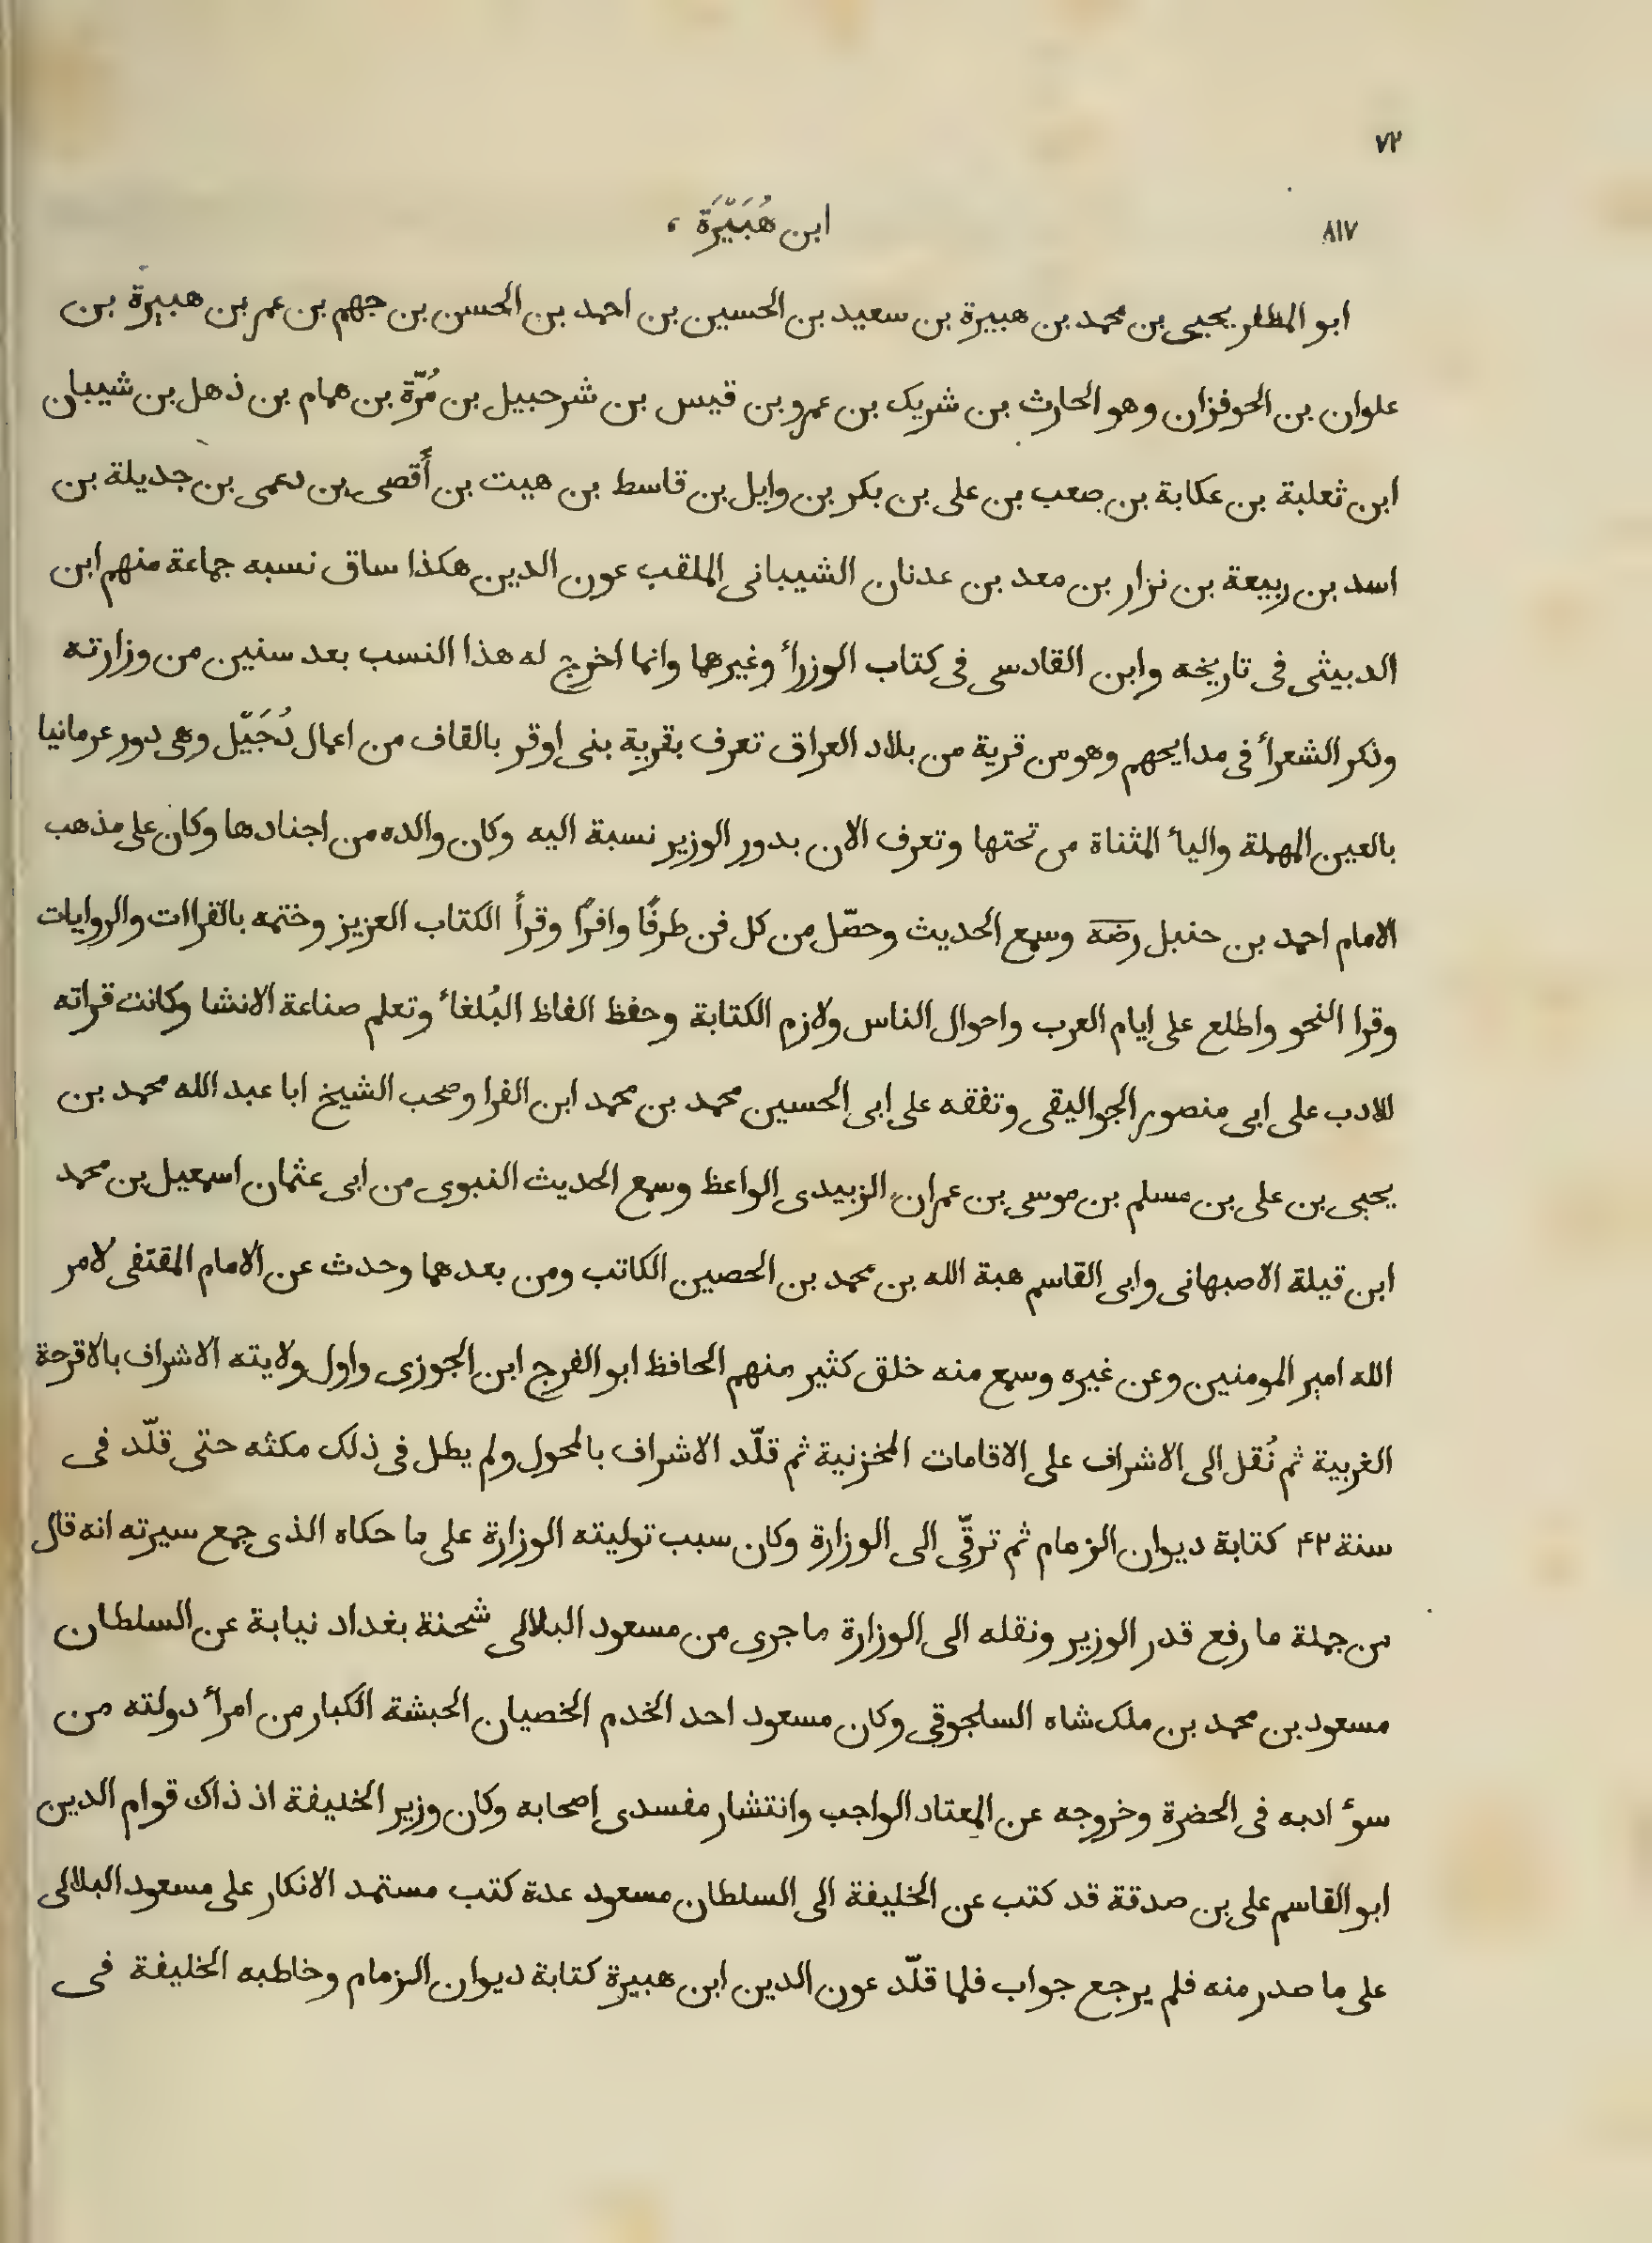 ٧٢
٨١٧
ابن هُبَيْرَة ،
ابو المظفر يحيى بن محمد بن هبيرة بن سعيد بن الحسين بن احمد بن الحسن بن جهم بن عمر بن هبيرة بن
علوان بن الحوفزان وهو الحارث بن شريک بن عمرو بن قيس بن شرحبيل بن مُرّة بن همام بن ذهل بن شيبان
ابن ثعلبة بن عكابة بن صعب بن على بن بكر بن وايل بن قاسط بن هيت بن أَقصى بن دعمى بن جديلة بن
اسد بن ربيعة بن نزار بن معد بن عدنان الشيبانى الملقب عون الدين هكذا ساق نسبه جماعة منهم ابن
الدبيثى فى تاريخه وابن القادسى فى كتاب الوزرأ وغيرهما وانما اخرج له هذا النسب بعد سنين من وزارته
وذكر الشعرأ فى مدايحهم وهو من قرية من بلاد العراق تعرف بقرية بنى اوقر بالقاف من اعمال دُجَيّل وهى دور عرمانيا
بالعين المهملة واليأ المثناة من تحتها وتعرف الان بدور الوزير نسبة اليه وكان والده من اجنادها وكان على مذهب
الامام احمد بن حنبل رضه وسمع الحديث وحصّل من كل فن طرفًا وافرًا وقرأ الكتاب العزيز وختمه بالقراات والروايات
وقرا النحو واطلع على ايام العرب واحوال الناس ولازم الكتابة وحفظ الفاظ البُلغأ وتعلم صناعة الانشا وكانت قراته
للادب على ابى منصور الجواليقى وتفقه على ابى الحسين محمد بن محمد ابن الفرا وصحب الشيخ ابا عبد الله محمد بن
يحيى بن على بن مسلم بن موسى بن عمران الزبيدى الواعظ وسمع الحديث النبوى من ابى عثمان اسمعيل بن محمد
ابن قيلة الاصبهانى وابى القاسم هبة الله بن محمد بن الحصين الكاتب ومن بعدهما وحدث عن الامام المقتفى لامر
الله امير المومنين وعن غيره وسمع منه خلق كثير منهم الحافظ ابو الفرج ابن الجوزى واول ولايته الاشراف بالاقرحة
الغربية ثم نُقل الى الاشراف على الاقامات المخزنية ثم قلّد الاشراف بالمحول ولم يطل فى ذلک مكثه حتى قلّد فى
سنة ۴۲ كتابة ديوان الزمام ثم ترقّى الى الوزارة وكان سبب توليته الوزارة على ما حكاه الذى جمع سيرته انه قال
من جملة ما رفع قدر الوزير ونقله الى الوزارة ما جرى من مسعود البلالى شحنة بغداد نيابة عن السلطان
مسعود بن محمد بن ملک شاه السلجوقى وكان مسعود احد الخدم الخصيان الحبشة الكبار من امرأ دولته من
سوٴ ادبه فى الحضرة وخروجه عن المعتاد الواجب وانتشار مفسدى اصحابه وكان وزير الخليفة اذ ذاک قوام الدين
ابو القاسم على بن صدقة قد كتب عن الخليفة الى السلطان مسعود عدة كتب مستمد الانكار على مسعود البلالى
على ما صدر منه فلم يرجع جواب فلما قلّد عون الدين ابن هبيرة كتابة ديوان الزمام وخاطبه الخليفة فى